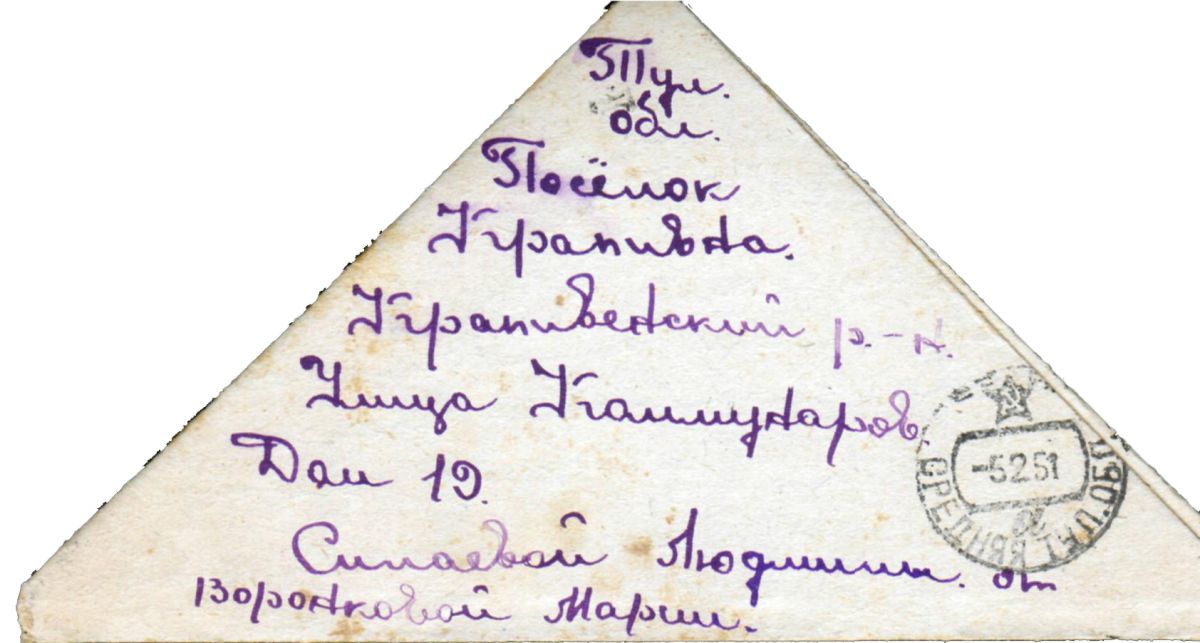 Тул.
обл.
Посёлок
Крапивна.
Крапивенский р.-н.
Улица Коммунаров.
Дом 19.
Силаевой Людмилы. от
Воронковой Марии.
-5.2.51